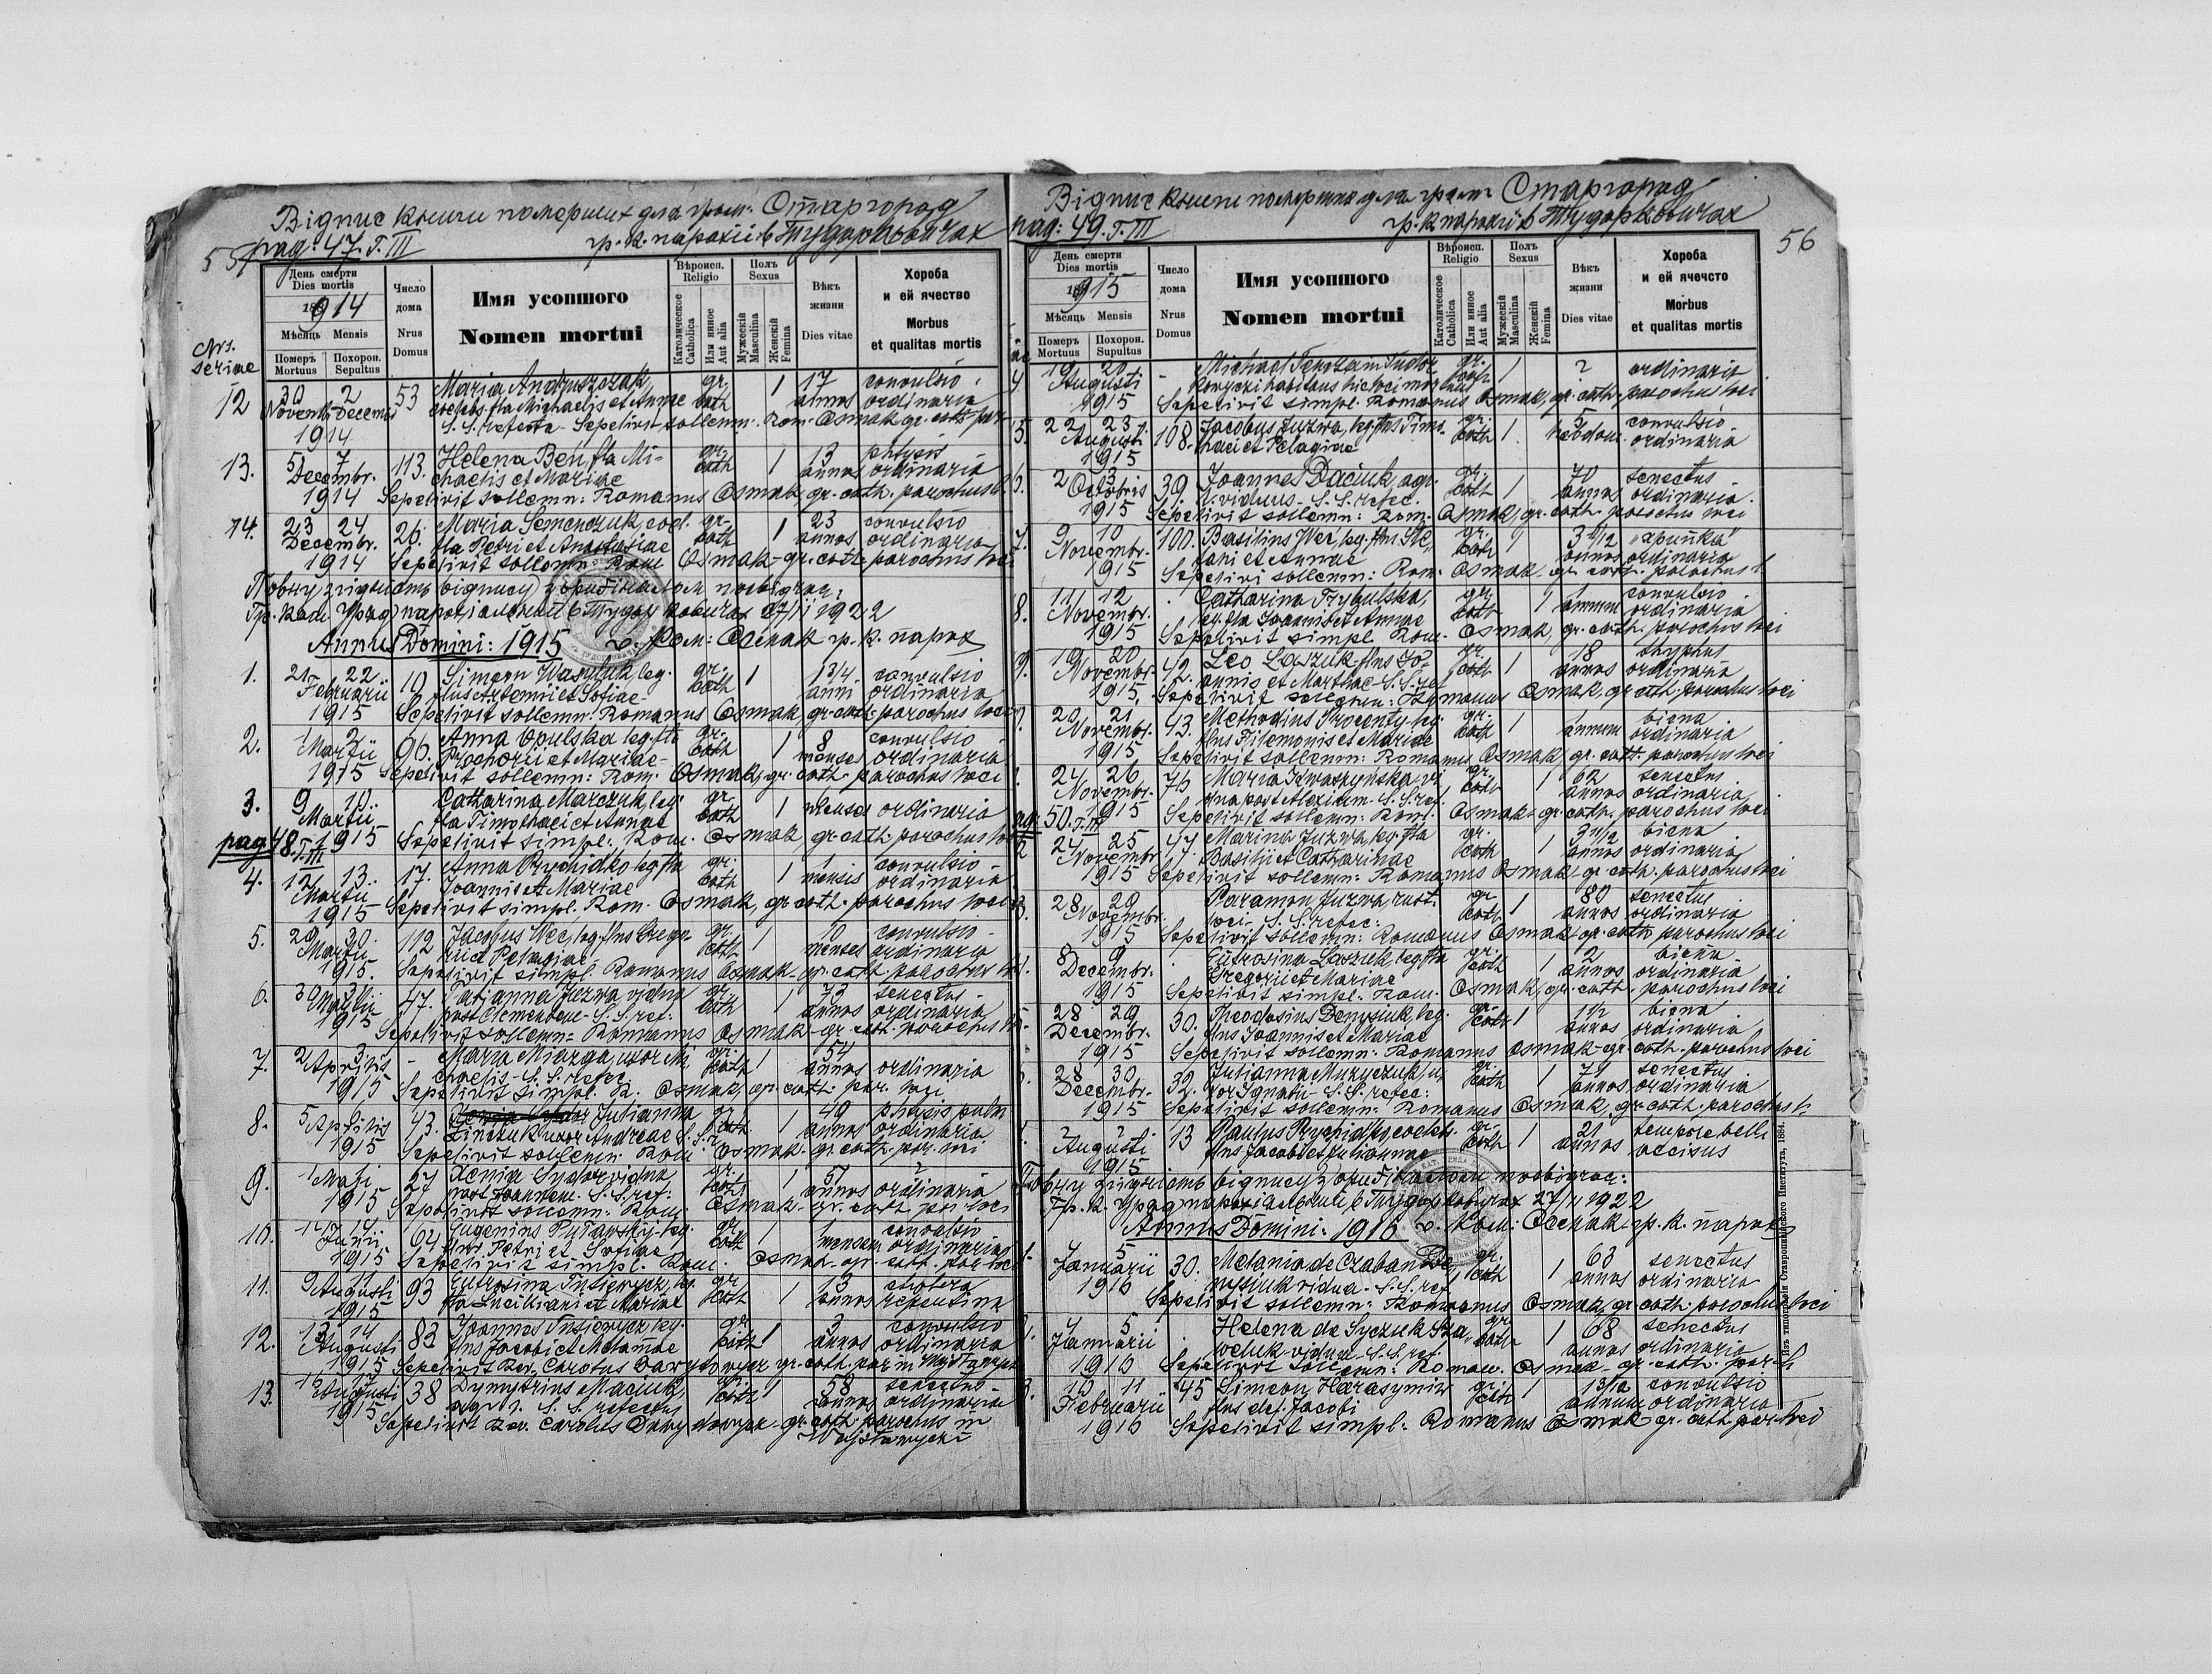 Відпис книги померших для гром: Старгород
55 pag: 47. T. III гр. к. парохії в Тудорковичах
День смерти
Dies mortis
1914
Мѣсяць Mensis
Померъ Mortuus
Похорон. Sepultus
Число дома
Nrus Domus
Имя усопшого
Nomen mortui
Вѣроисп.
Religio
Католическое
Catholica
Или инное
Aut alia
Полъ
Sexus
Мужескій
Masculina
Женскій
Femina
Вѣкъ жизни
Dies vitae
Хороба
и ей ячество
Morbus
et qualitas mortis
Nrs. seriae
12 30 2 53 Maria Andruszczak, gr. 1 17 convulsio
Novemb. Decemb. coelebs fla Michaelis et Annae cath annos ordinaria
1914 S. S. refecta - Sepelivit sollemn. Rom. Osmak gr. cath par
13. 5 7 113. Helena Ben, fla Mi- gr. 1 13 phtysis
Decembr. chaelis et Mariae cath annos ordinaria
1914 Sepelivit sollemn: Romanus Osmak gr. cath. parochus l.
14. 23 24 26. Maria Semenczuk, coel. gr. 1 23 convulsio
Decembr. fla Petri et Anastasiae cath annos ordinaria
1914 Sepelivit sollemn: Rom Osmak - gr. cath parochus loci
Повну згідність відпису з
Гр. кат. Уряд парохіяльний в Тудорковичах 27/ 1922
Annus Domini: 1915 о. Ром: Осмак гр. к. парох
1. 21 22 10 Simeon Wasyluk leg. gr. 1 1 3/4 convulsio
Februarii flus Artemii et Sofiae cath anni ordinaria
1915 Sepelivit sollemn: Romanus Osmak gr. cath. parochus loci
2. 1 2 96. Anna Opulska leg. fla gr. 1 8 convulsio
Martii Prochorii et Mariae cath menses ordinaria
1915 Sepelivit sollemn: Rom. Osmak, gr. cath. parochus loci
3. 9 10 Catharina Marczuk leg. gr. 1 menses ordinaria
Martii fla Timothaei et Annae cath
pag. 48. T. III 1915 Sepelivit simpl: Rom. Osmak gr. cath. parochus loci
4. 12 13 17. Anna Prychidko leg fla gr. 1 1 convulsio
Martii Joannis et Mariae cath mensis ordinaria
1915 Sepelivit simpl. Rom. Osmak, gr. cath. parochus loci
5. 29 30 112 Jacobus Wec, leg flus Grego- gr. 1 10 convulsio
Martii rii et Pelagiae cath menses ordinaria
1915. Sepelivit simpl. Romanus Osmak - gr. cath. parochus
6. 30 31 47. Tatianna Juzwa vidua gr. 1 73 senectus
Martii post Clementem - S. S. ref. cath annos ordinaria
1915 Sepelivit sollemn: Romanus Osmak - gr. cath parochus
7. 2 3 - Maria Miarga, uxor Mi- gr. 1 54
Aprilis chaelis - S. S. refec cath annos ordinaria
1915 Sepelivit simpl. R. Osmak, gr. cath. par. loci
8. 5 43. Julianna gr. 1 49 phtysis pulm
Aprilis Linczuk uxor Andreae S. S. r. cath annos ordinaria
1915 Sepelivit sollemn. Rom. Osmak. gr. cath. par. loci
9. 1 27 Xenia Sydor vidua gr. 1 57 ?
Maji post Joannem. S. S. ref: cath annos ordinaria
1915 Sepelivit sollemn: Rom: Osmak. gr. cath par loci
10. 14 14 64 Eugenius leg. gr. 1 1 convulsio
Junii flus Petri et Sofiae cath mensem ordinaria
1915 Sepelivit simpl. Rom. Osmak - gr. cath. par loci
11. 9 11 93 Eufrosina leg. gr 1 13 cholera
Augusti fla et Mariae cath annos repentina
1915
12. 13 14 83 Joannes leg. gr 1 3 convulsio
Augusti flus Jacobi et Melaniae cath annos ordinaria
1915 Sepelivit Rev. Carolus Dawydowycz gr. cath. par in
13. 16 17 38 Dymytrius Maciuk, gr. 1 58 senectus
Augusti agr. S. S. refectus cath annos ordinaria
1915 Sepelivit Rev. Carolus Dawydowycz - gr. cath. parochus in
Wojsławycz
Відпис книги померших для гром: Старгород
pag: 49. T. III гр. к. парохії в Тудорковичах 56
День смерти
Dies mortis
1915
Мѣсяць Mensis
Померъ Mortuus
Похорон. Supultus
Число дома
Nrus Domus
Имя усопшого
Nomen mortui
Вѣроисп.
Religio
Католическое
Catholica
Или инное
Aut alia
Полъ
Sexus
Мужескій
Masculina
Женскій
Femina
Вѣкъ жизни
Dies vitae
Хороба
и ей ячечсто
Morbus
et qualitas mortis
19 20 - Michael gr. 1 ? ordinaria
Augusti cath
1915 Sepelivit simpl. Romanus Osmak, gr. cath. parochus loci
5. 22 23 108. Jacobus Juzwa, leg. flus Timo- gr. 1. 5 convulsio
Augusti thaei et Pelagiae cath hebdom. ordinaria
1915
6. 2 3 39. Joannes Daciuk, agr. gr. 1 70 senectus
Octobris viduus - S. S. refec. cath annos ordinaria
1915 Sepelivit sollemn: Rom. Osmak, gr. cath. parochus loci
7. 9 10 100. Basilius Wec, leg. flus Ste- gr. 1 3 "apunka"
Novembr. fani et Annae cath annos ordinaria
1915 Sepelivi sollemn: Rom. Osmak - gr. cath. parochus l
8. 11 12 Catharina Trybulska, gr. 1 1 convulsio
Novembr. leg. fla Joannis et Annae cath annum ordinaria
1915 Sepelivit simpl. Rom. Osmak, gr. cath. parochus loci
9. 19 20 42. Leo Laszuk flus Jo- gr. 1 18 thyphus
Novembr. annis et Marthae - S. S. ref cath annos ordinaria
1915. Sepelivit sollemn: Romanus Osmak, gr. cath. parochus loci
20 21 43. Methodius Procenty leg. gr. 1 1 biena
Novembr. flus Filemonis et Mariae cath annum ordinaria
1915 Sepelivit sollemn: Romanus Osmak gr. cath. parochus loci
24 26 76 Maria vi- gr. 1 62 senectus
Novembr. dua post Alexium. S. S. ref. cath annos ordinaria
50. T. III 1915 Sepelivit sollemn: Rom: Osmak - gr. cath. parochus loci
24 25 47 Marina Juzwa, leg. fla gr. 1 3 biena
Novembr Basilii et Catharinae cath annos ordinaria
1915 Sepelivit sollemn: Romanus Osmak - gr. cath. parochus loci
28 29 Paramon Juzwa, rust. gr 1 80 senectus
Novembr. loci - S. S. refec: cath annos ordinaria
1915 Sepelivit sollemn: Romanus Osmak gr. cath parochus loci
8 9 Eufrosina Laszuk, leg fla gr. 1 2 biena
Decembr. Gregorii et Mariae cath annos ordinaria
1915 Sepelivit simpl. Rom. Osmak, gr. cath. parochus loci
28 29 30. Theodosius Denysiuk, leg. gr. 1 1 1/2 biena
Decembr. flus Joannis et Mariae cath annos ordinaria
1915 Sepelivit sollemn: Romanus Osmak - gr. cath. parochus loci
28 30 32. Julianna Muzyczuk, u- gr. 1 71 senectus
Decembr. xor Ignatii S. S. refec: cath annos ordinaria
1915 Sepelivit sollemn: Romanus Osmak, gr. cath. parochus l.
? ? 13 Paulus Prychidko, coelebs gr. 1 21 tempore belli
Augusti flus Jacobi et Juliannae cath annos occisus
1915
Повну згідність відпису з
Гр. к. Уряд парохіяльний в Тудорковичах 27/ 1922
Annus Domini: 1916 о. Ром: Осмак гр. к. парох
1. 5 30. Melania de Czaban De- gr. 1 63 senectus
Januarii nysiuk vidua - S. S. ref cath annos ordinaria
1916 Sepelivit sollemn: Romanus Osmak, gr. cath. parochus loci
2. 4 5 Helena de Syczuk gr 1 68 senectus
Januarii vidua S. S. ref cath annos ordinaria
1916 Sepelivit sollemn: Roman. Osmak - gr. cath. par. l.
3. 10 11 45 Simeon Harasymiw gr. 1 1 3/12 convulsio
Februarii flus def. Jacobi cath annum ordinaria
1916 Sepelivit simpl: Romanus Osmak - gr. cath. par loci
Изъ типографіи Ставропигійского Института, 1894.